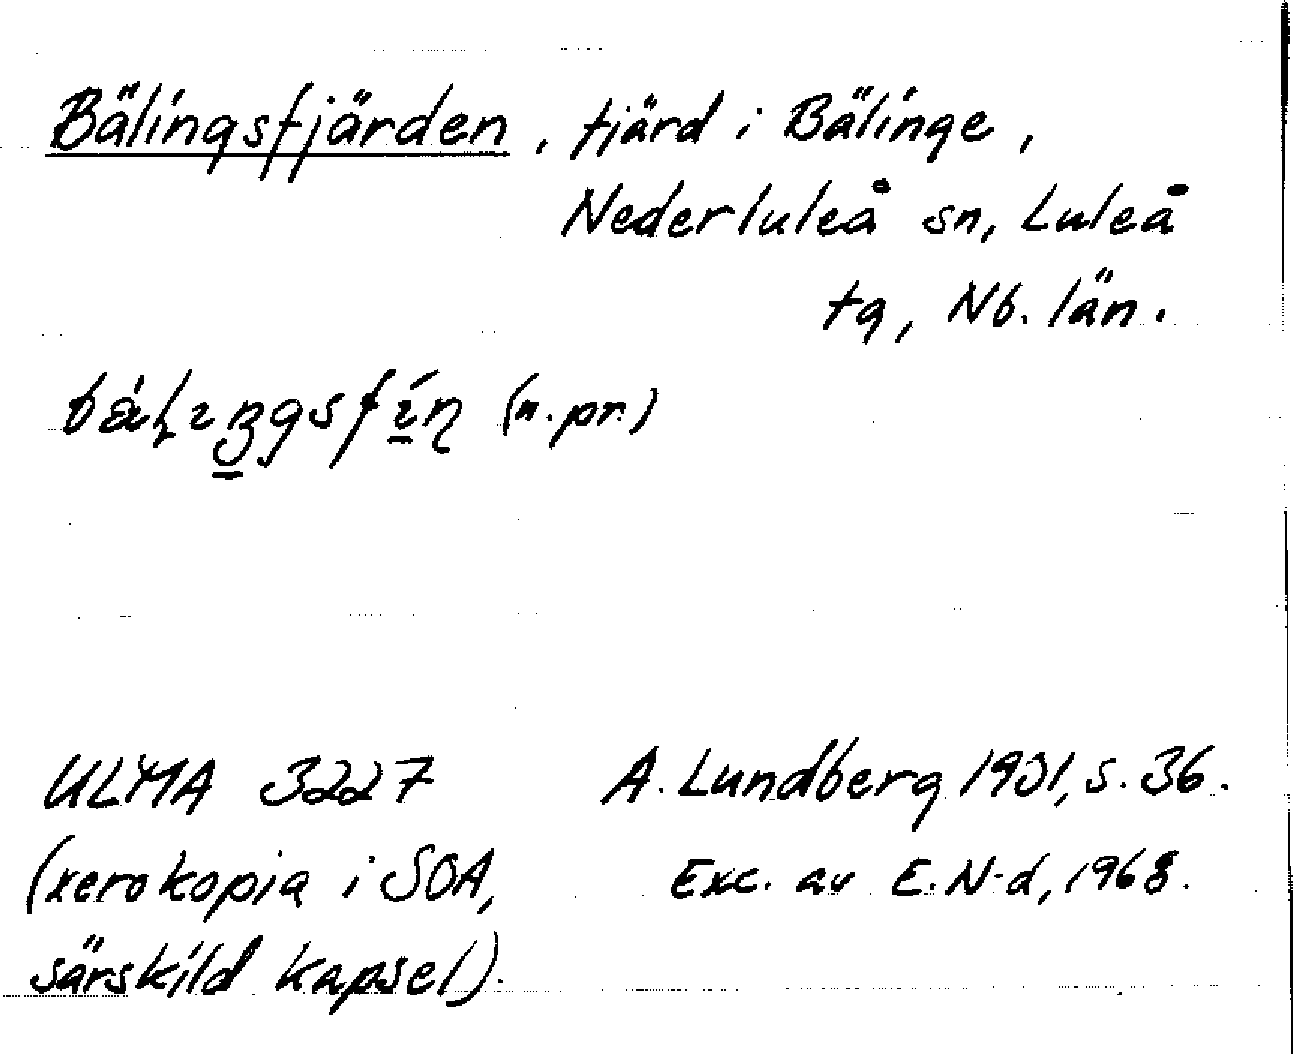 Bälingsfjärden, fjärd i Bälinge,
Nederluleå sn, Luleå
tg, Nb. län.
(n. pr.)
ULMA 3227 A. Lundberg 1931, s. 36.
(xerokopia i SOA, Exc. av E. N-d, 1968.
särskild kapsel).